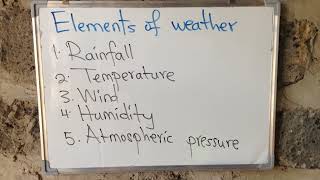 Elements of weather
1. Rainfall
2. Temperature
3. Wind
4. Humidity
5. Atmospheric pressure